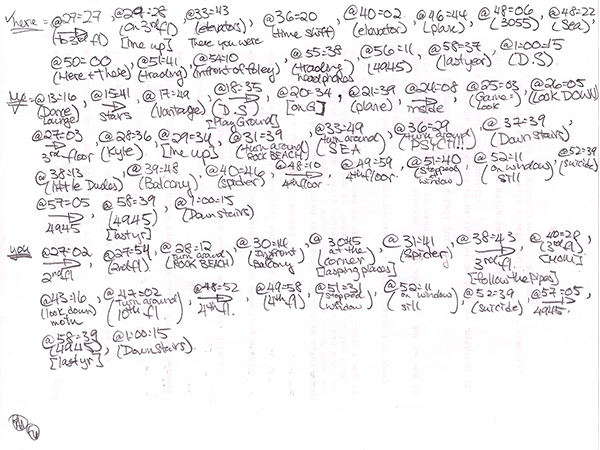 here = @27=27, @29=28, @33=43, @36=20, @40=02, @46=44, @48=06, @48=22
(to 3rd fl) (on 3rd fl) (elevators) (time shift) (elevator) (plane) (3055) (Sea)
[me up] There you were
@50=00, @51=41, @54=10, @55=38, @56=11, @58=37, @1=00=15
(Here + those) (trading) (in front of Foley) (trading headphones) (4945) (last year) (D.S)
@13=16, @15=41, @17=49, @18=35, @20=34, @21=39, @24=08, @25=03, @26=05
(Dorre Lounge) stairs (Vantage) (D.S) [on G] (plane) inside (same = look) (LOOK DOWN)
[Play Ground]
@27=03, @28=36, @29=34, @31=39, @33=49, @36=29, @37=39
3rd floor (Kyle) [me up] (turn around ROCK BEACH) (turn around) SEA (turn around) PSYCH!!! (Down stairs)
@38=13, @39=48, @40=46, @48=10, @49=59, @51=40, @52=11, @52=39
(little Dudes) (Balcony) (spider) 4th floor 4th floor (stopped window) (on window) sill (suicide)
@57=05, @58=39, @1=00=15
4945 (4945) (Down stairs)
[last yr]
you @27=02, @27=54, @28=12, @30=14, @30=45, @31=41, @38=43, @40=28
2nd fl (2nd fl) (turn around) (ROCK BEACH) (in front) Balcony at the corner (spider) 3rd fl (3rd fl)
[follow the pipes]
@43=16, @47=02, @48=52, @49=58, @51=31, @52=11, @52=39, @57=05
(look down) moth (turn around) 10th fl. 4th fl. (4th fl) (stopped window) (on window) sill (suicide) 4945
@58=39, @1=00=15
(4945) (Down stairs)
[last yr]